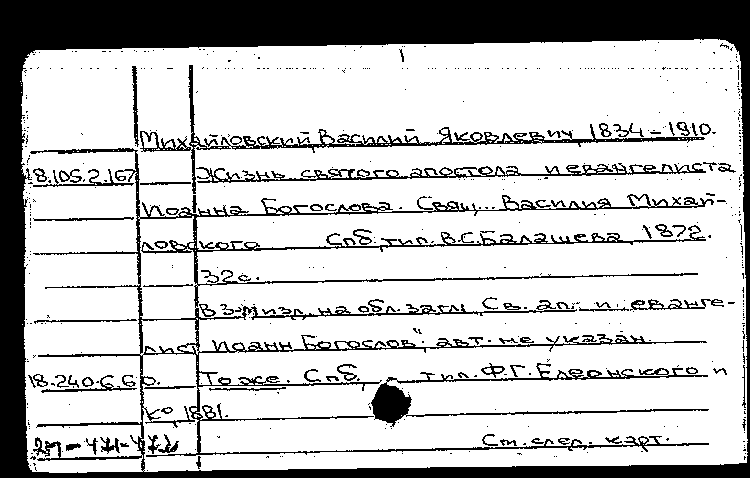 Михайловский, Василий Яковлевич, 1834-1910.
18.105.2.167 Жизнь святого апостола и евангелиста
Иоанна Богослова. Свящ. Василия Михай-
ловского Спб, тип. В.С.Балашева, 1872.
32с.
В 3-м изд. на обл. загл. Св. ап. и еванге-
лист Иоанн Богослов"; авт. не указан.
18.240.6.60. То же. Спб, тип. Ф.Г. Елеонского и
К°, 1881.
См. след. карт.